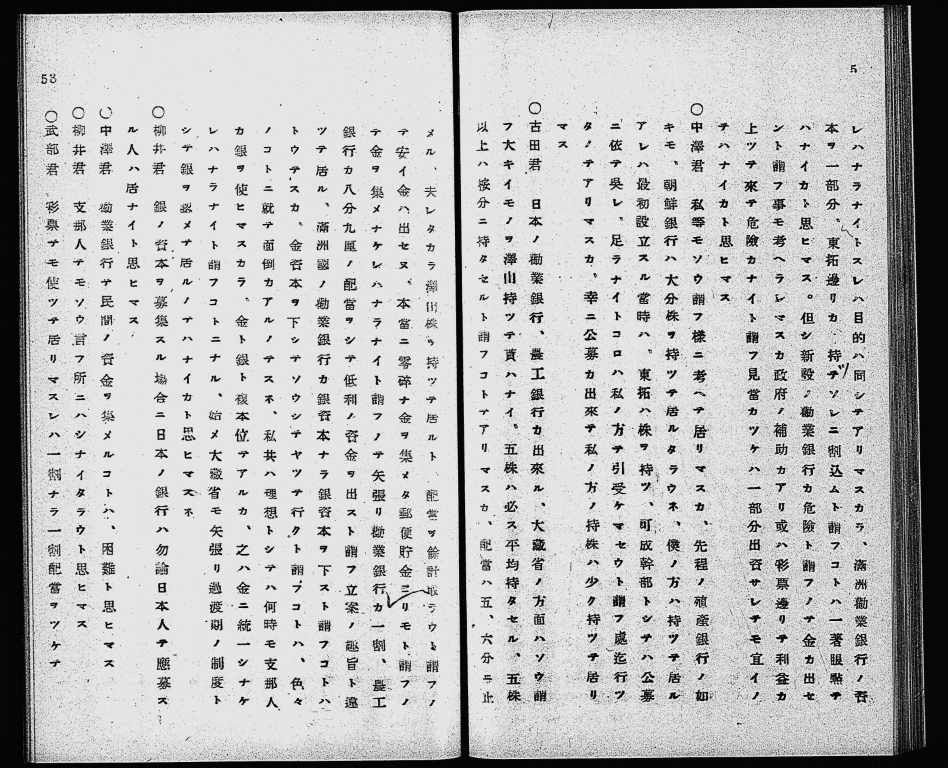 レハナラナイトスレハ目的ハ同シテアリマスカラ、滿洲勸業銀行ノ資
本ヲ一部分、東拓邊リカ 持テソレニ割込ムト謂フコトハ一著眼點テ
ハナイカト思ヒマス。但シ新設ノ勸業銀行カ危險ト謂フノテ金カ出セ
ント謂フ事モ考ヘラレマスカ政府ノ補助カアリ或ハ彩票邊リテ利益カ
上ツテ來テ危險カナイト謂フ見當カツケハ一部分出資サレテモ宜イノ
テハナイカト思ヒマス
○中澤君 私等モソウ謂フ樣ニ考ヘテ居リマスカ、先程ノ殖產銀行ノ如
キモ、朝鮮銀行ハ大分株ヲ持ツテ居ルタラウネ、僕ノ方ハ持ツテ居ル
アレハ最初設立スル當時ハ、東拓ハ株ヲ持ツ、可成幹部トシテハ公募
ニ依テ吳レ、足ラナイトコロハ私ノ方テ引受ケマセウト謂フ處迄行ツ
タノテアリマスカ、幸ニ公募カ出來テ私ノ方ノ持株ハ少ク持ツテ居リ
マス
○古田君 日本ノ勸業銀行、農工銀行カ出來ル、大藏省ノ方面ハソウ謂
フ大キイモノヲ澤山持ツテ貰ハナイ。五株ハ必ス平均持タセル、五株
以上ハ按分ニ持タセルト謂フコトテアリマスカ、配當ハ五、六分ニ止
メル、夫レタカラ澤山株ヲ持ツテ居ルト 配當ヲ餘計取ラウト謂フノ
テ安イ金ハ出セヌ、本當ニ零碎ナ金ヲ集メタ郵便貯金ヨリモト謂フノ
テ金ヲ集メナケレハナラナイト謂フノテ矢張リ勸業銀行カ一割、農工
銀行カ八分九厘ノ配當ヲシテ低利ノ資金ヲ出スト謂フ立案ノ趣旨ト違
ツテ居ル、滿洲國ノ勸業銀行カ銀資本ナラ銀資本ヲ下スト謂フコトハ
トウテスカ、金資本ヲ下シテソウシテヤツテ行クト謂フコトハ、色々
ノコトニ就テ面倒カアルノテスネ、私共ハ理想トシテハ何時モ支那人
カ銀ヲ使ヒマスカラ、金ト銀ト複本位テアルカ、之ハ金ニ統一シナケ
レハナラナイト謂フコトニナル、始メ大藏省モ矢張リ過渡期ノ制度ト
シテ銀ヲ認メテ居ルノテハナイカト思ヒマスネ
○柳井君 銀ノ資本ヲ募集スル場合ニ日本ノ銀行ハ勿論日本人テ應募ス
ル人ハ居ナイト思ヒマス
○中澤君 勸業銀行テ民間ノ資金ヲ集メルコトハ、困難ト思ヒマス
○柳井君 支那人テモソウ言フ所ニハシナイタラウト思ヒマス
○武部君 彩票テモ使ツテ居リマスレハ一割ナラ一割配當ヲツケテ
53